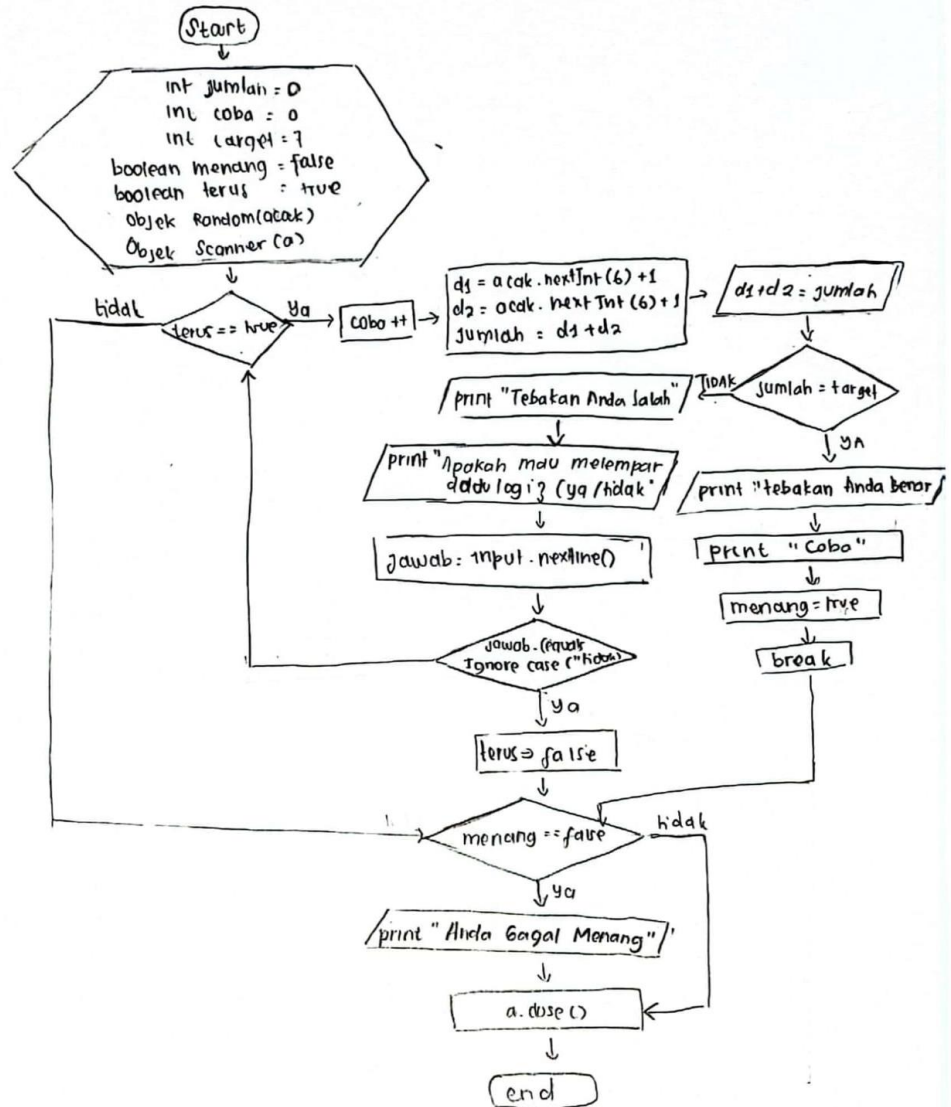 Start
int jumlah = 0
int coba = 0
int target = 7
boolean menang = false
boolean terus = true
objek Random(acak)
Objek Scanner (a)
terus == true
tidak
ya
coba ++
d1 = acak.nextInt(6)+1
d2 = acak.nextInt(6)+1
jumlah = d1+d2
d1+d2 = jumlah
jumlah = target
TIDAK
YA
print "Tebakan Anda Salah"
print "Apakah mau melempar
dadu lagi? (ya/tidak"
jawab = input.nextline()
jawab.(equals
Ignore case ("tidak)
ya
terus = false
print "tebakan Anda benar
print "Coba"
menang = true
break
menang == false
tidak
ya
print "Anda Gagal Menang"
a.close()
end